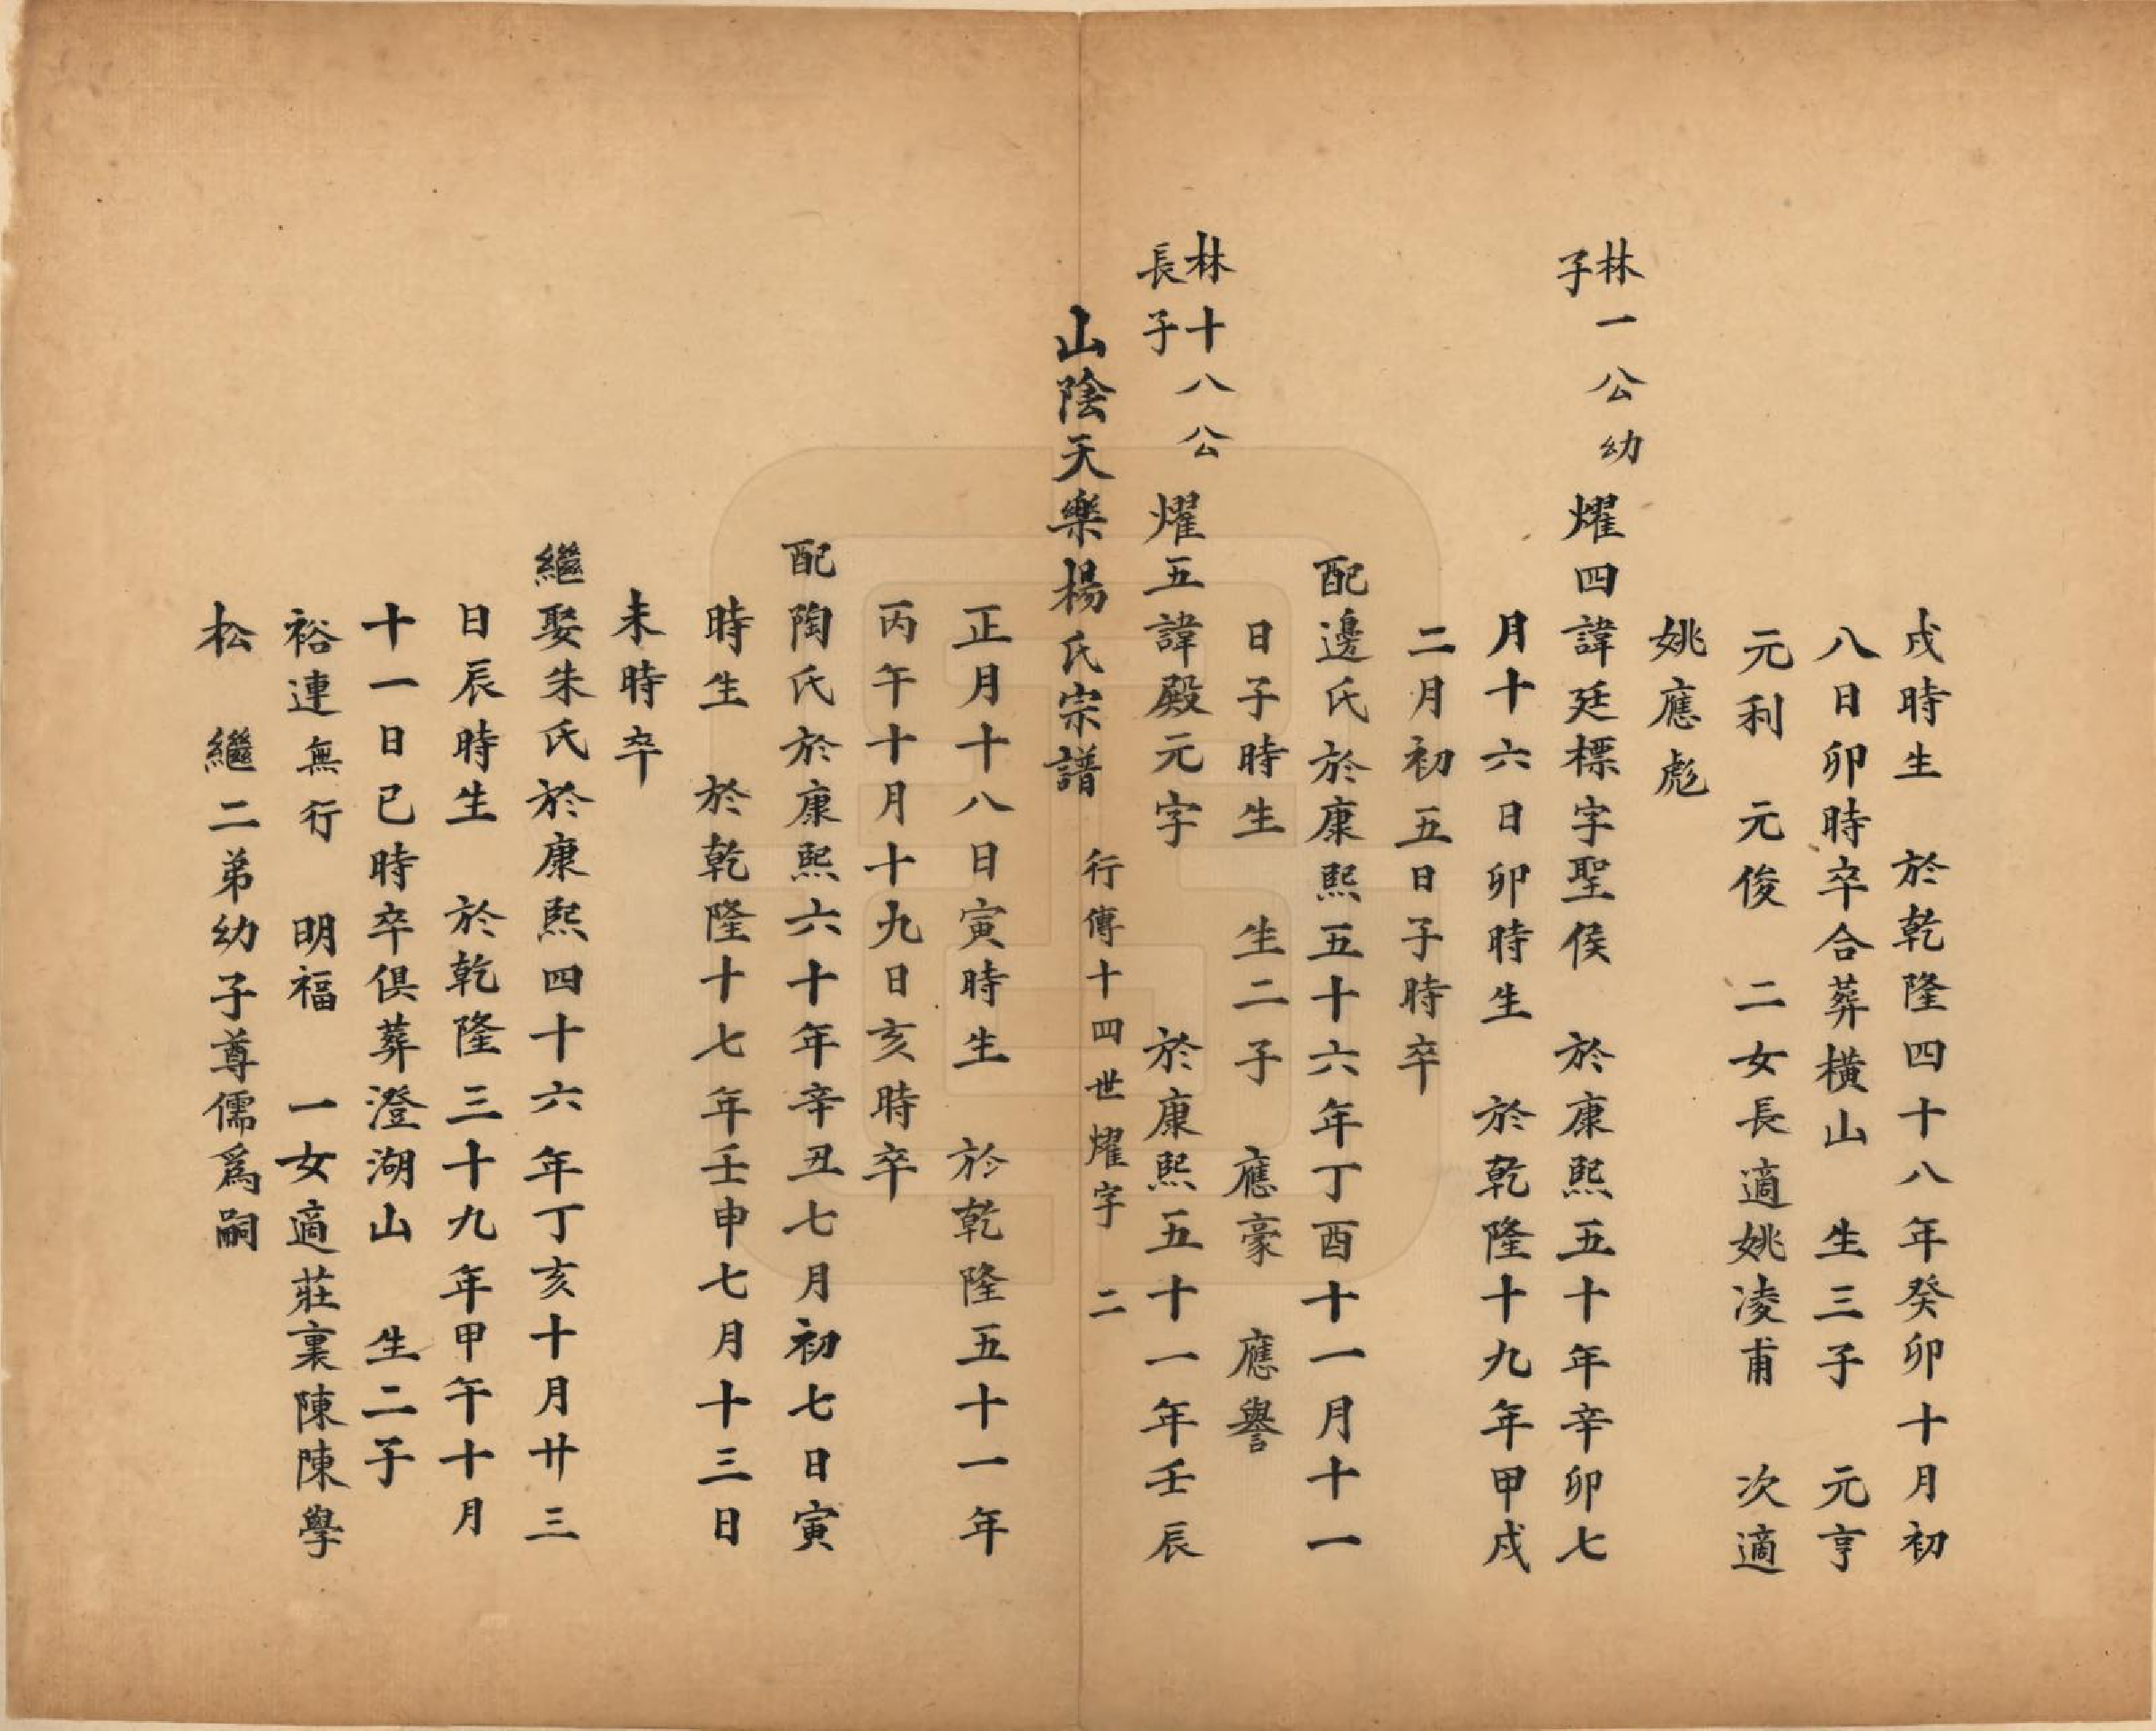 戌時生　於乾隆四十八年癸卯十月初
八日卯時卒合葬橫山　生三子　元亨
元利　元俊　二女長適姚凌甫　次適
姚應彪
林一公幼
子
耀四諱廷標字聖侯　於康熙五十年辛卯七
月十六日卯時生　於乾隆十九年甲戌
二月初五日子時卒
配邊氏於康熙五十六年丁酉十一月十一
日子時生　生二子　應豪　應譽
林十八公
長子
耀五諱殿元字　於康熙五十一年壬辰
山陰天樂楊氏宗譜　行傳十四世耀字　二
正月十八日寅時生　於乾隆五十一年
丙午十月十九日亥時卒
配陶氏於康熙六十年辛丑七月初七日寅
時生　於乾隆十七年壬申七月十三日
未時卒
繼娶朱氏於康熙四十六年丁亥十月廿三
日辰時生　於乾隆三十九年甲午十月
十一日巳時卒俱葬澄湖山　生二子
裕連無行　明福　一女適莊裏陳陳學
松　繼二弟幼子尊儒爲嗣